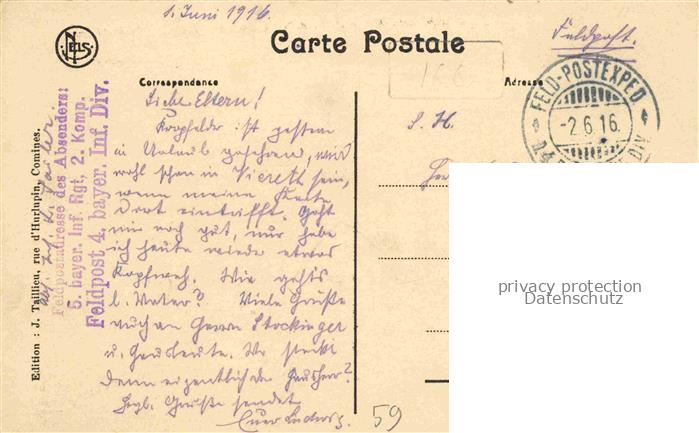 1. Juni 1916.
NELS
Carte Postale
Feldpost.
166
Correspondance
Adresse
FELD-POSTEXPED
-2.6.16.
DIV
Liebe Eltern!
Kropfelder ist gestern
in Urlaub gefahren, wird
wohl schon in Viereth sein,
wenn meine Karte
dort eintrifft. Geht
mir noch gut, nur habe
ich heute wieder etwas
Kopfweh. Wie gehts
l. Vater? Viele Grüße
auch an Herrn Stockinger
u. Hausleute. Wo steckt
denn eigentlich der Hausherr?
Hrzl. Grüße sendet
Euer Ludwig.
S. H.
Feldpostadresse des Absenders:
5. bayer. Inf. Rgt, 2. Komp.
Feldpost 4. bayer. Inf. Div.
Edition : J. Taillieu, rue d'Hurlupin, Comines.
59
privacy protection
Datenschutz